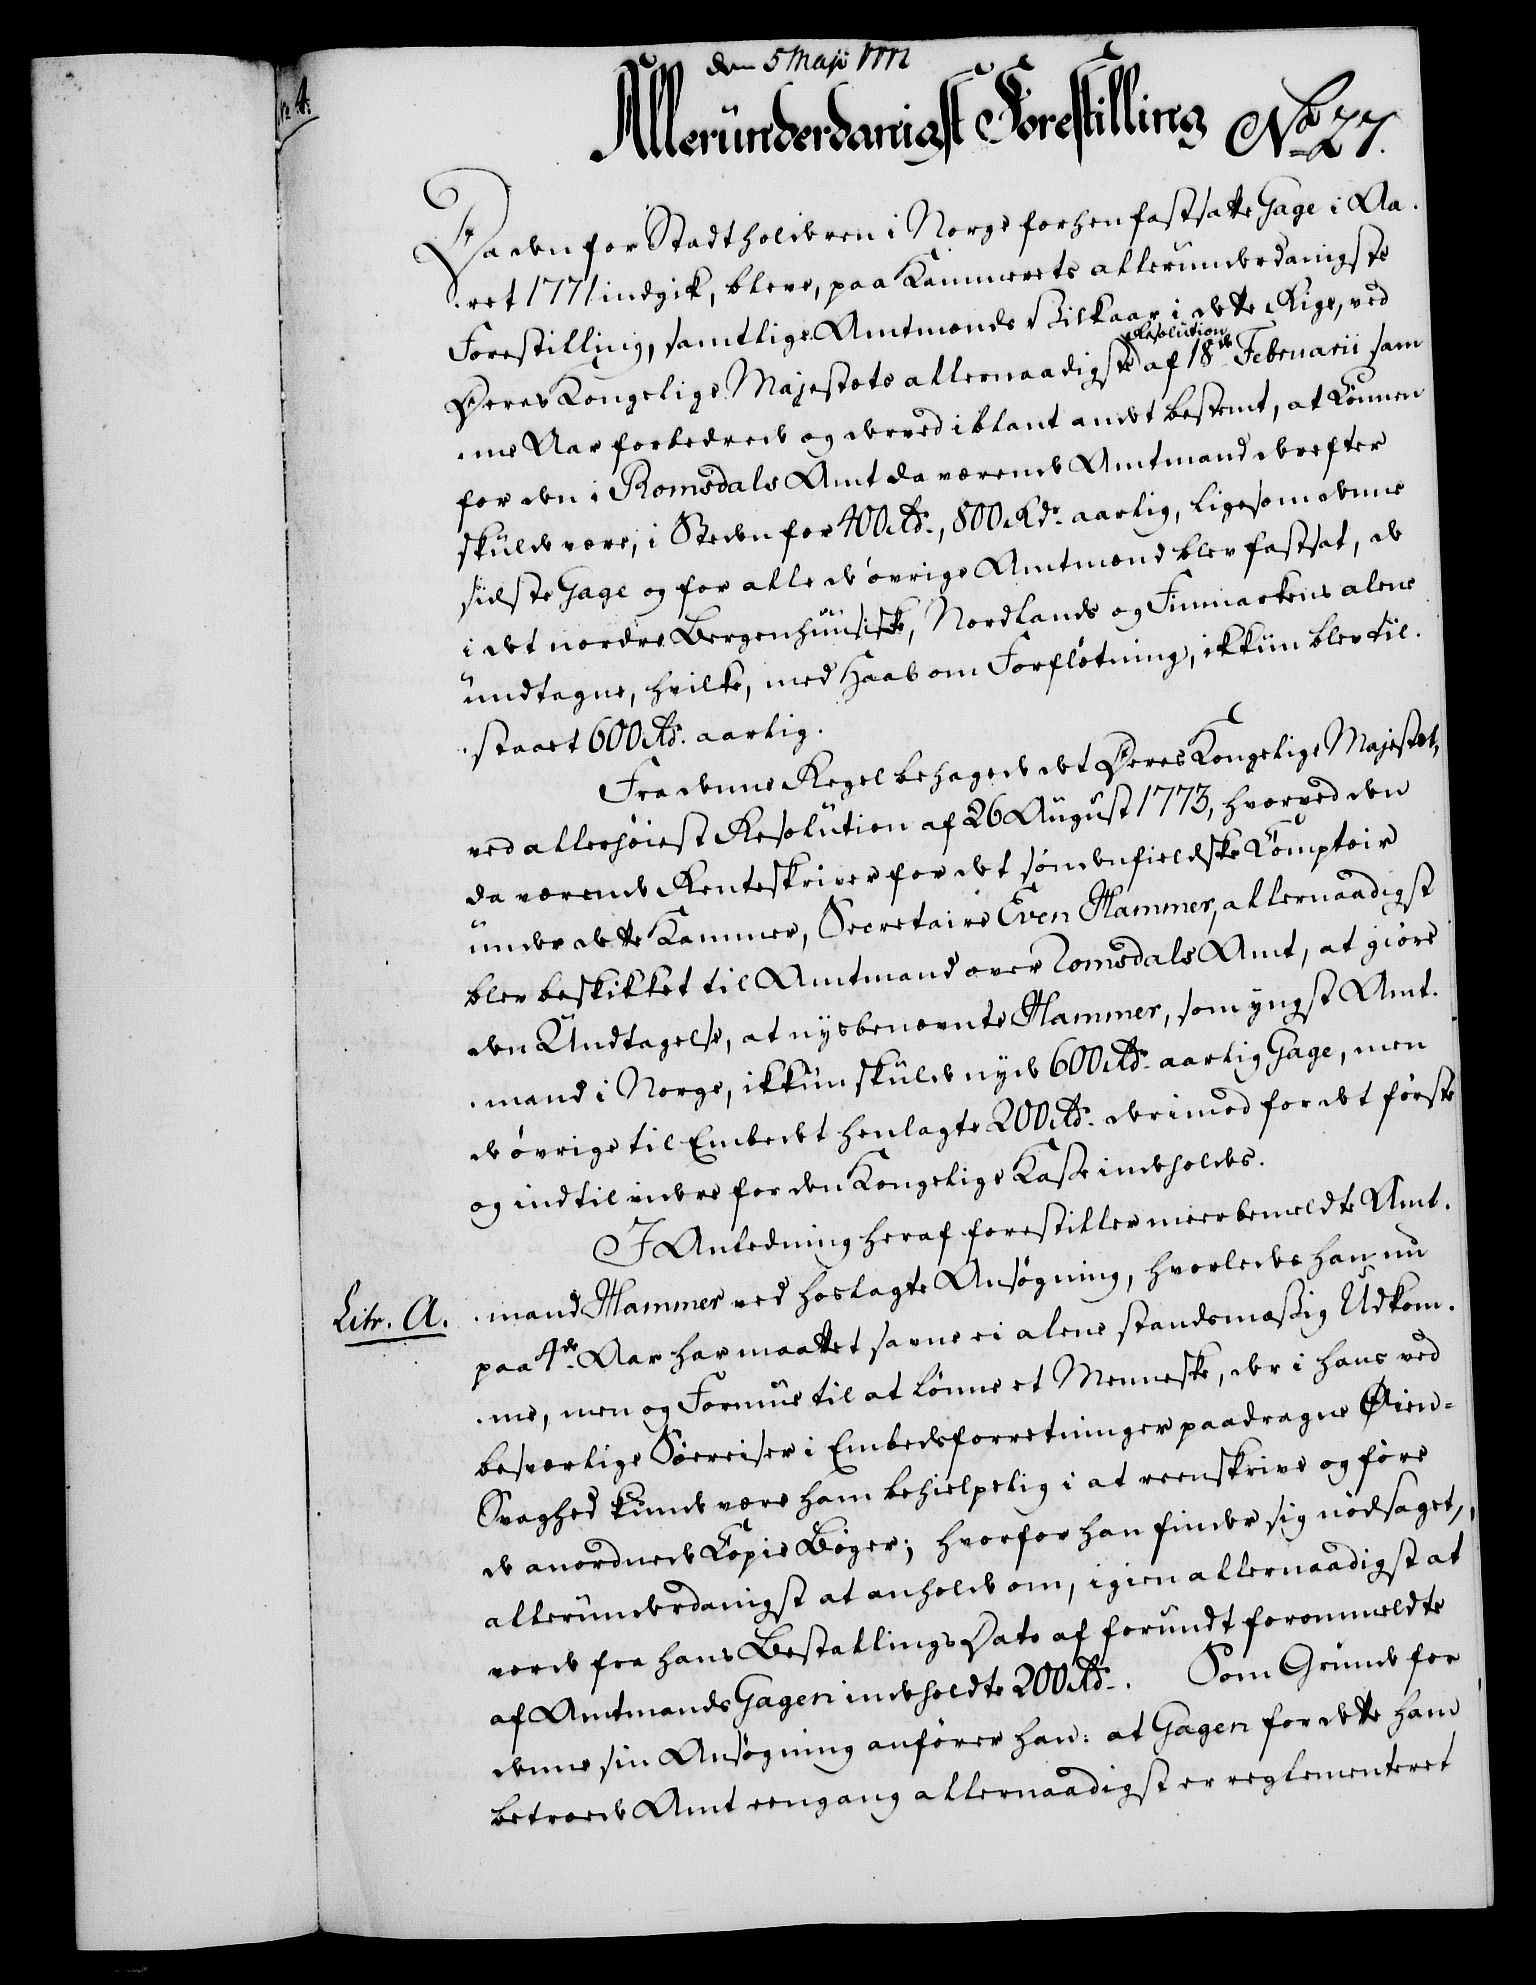 den 5 Maji 1777
Alleründerdanigst Forestilling No 27.
Da den for Stadtholderen i Norge forhen fastsatte Gage i Aa-
ret 1771 indgik, bleve, paa Kammerets allerunderdanigste
Forestilling, samtlige Amtmænds Vilkaar i dette Rige, ved
Deres Kongelige Majestæts allernaadigste Resolution af 18de Februarii sam-
me Aar forbedrede og derved iblant andet bestemt, at Lönnen
for den i Romsdals Amt da værende Amtmand derefter
skulde være, i Steden for 400 Rd., 800 Rdr. aarlig, ligesom denne
sidste Gage og for alle de øvrige Amtmænd blev fastsat, de
i det nordre Bergenhuusiske, Nordlands og Finmarkens alene
undtagne, hvilke, med Haab om Forfløtning, ikkun blev til-
staaet 600 Rd. aarlig.
Fra denne Regel behagede det Deres Kongelige Majestæt,
ved allerhöiest Resolution af 26 August 1773, hvorved den
da værende Renteskriver for det søndenfieldske Comptoir
under dette Kammer, Secretaire Even Hammer, allernaadigst
blev beskikket til Amtmand over Romsdals Amt, at giöre
den Undtagelse, at nysbenævnte Hammer, som yngst Amt-
mand i Norge, ikkun skulde nyde 600 Rd. aarlig Gage, men
de øvrige til Embedet henlagte 200 Rd. derimod for det første
og indtil videre for den Kongelige Kasse indeholdes.
I Anledning heraf forestiller meerbemeldte Amt-
Litr. A. mand Hammer ved hoslagte Ansøgning, hvorledes han nu
paa 4de Aar har maattet savne ei alene standsmæssig Udkom-
me, men og Formue til at lønne et Menneske, der i hans ved
besværlige Söereiser i Embedsforretninger paadragne Øien-
Svaghed kunde være ham behielpelig i at reenskrive og føre
de anordnede Copie Bøger; hvorfor han finder sig nödsaget,
allerunderdanigst at anholde om, igien allernaadigst at
vorde fra hans Bestallings Dato af forundt forommeldte
af Amtmands Gagen indeholdte 200 Rd. Som Grunde for
denne sin Ansøgning anfører han: at Gagen for dette ham
betroede Amt eengang allernaadigst er reglementeret